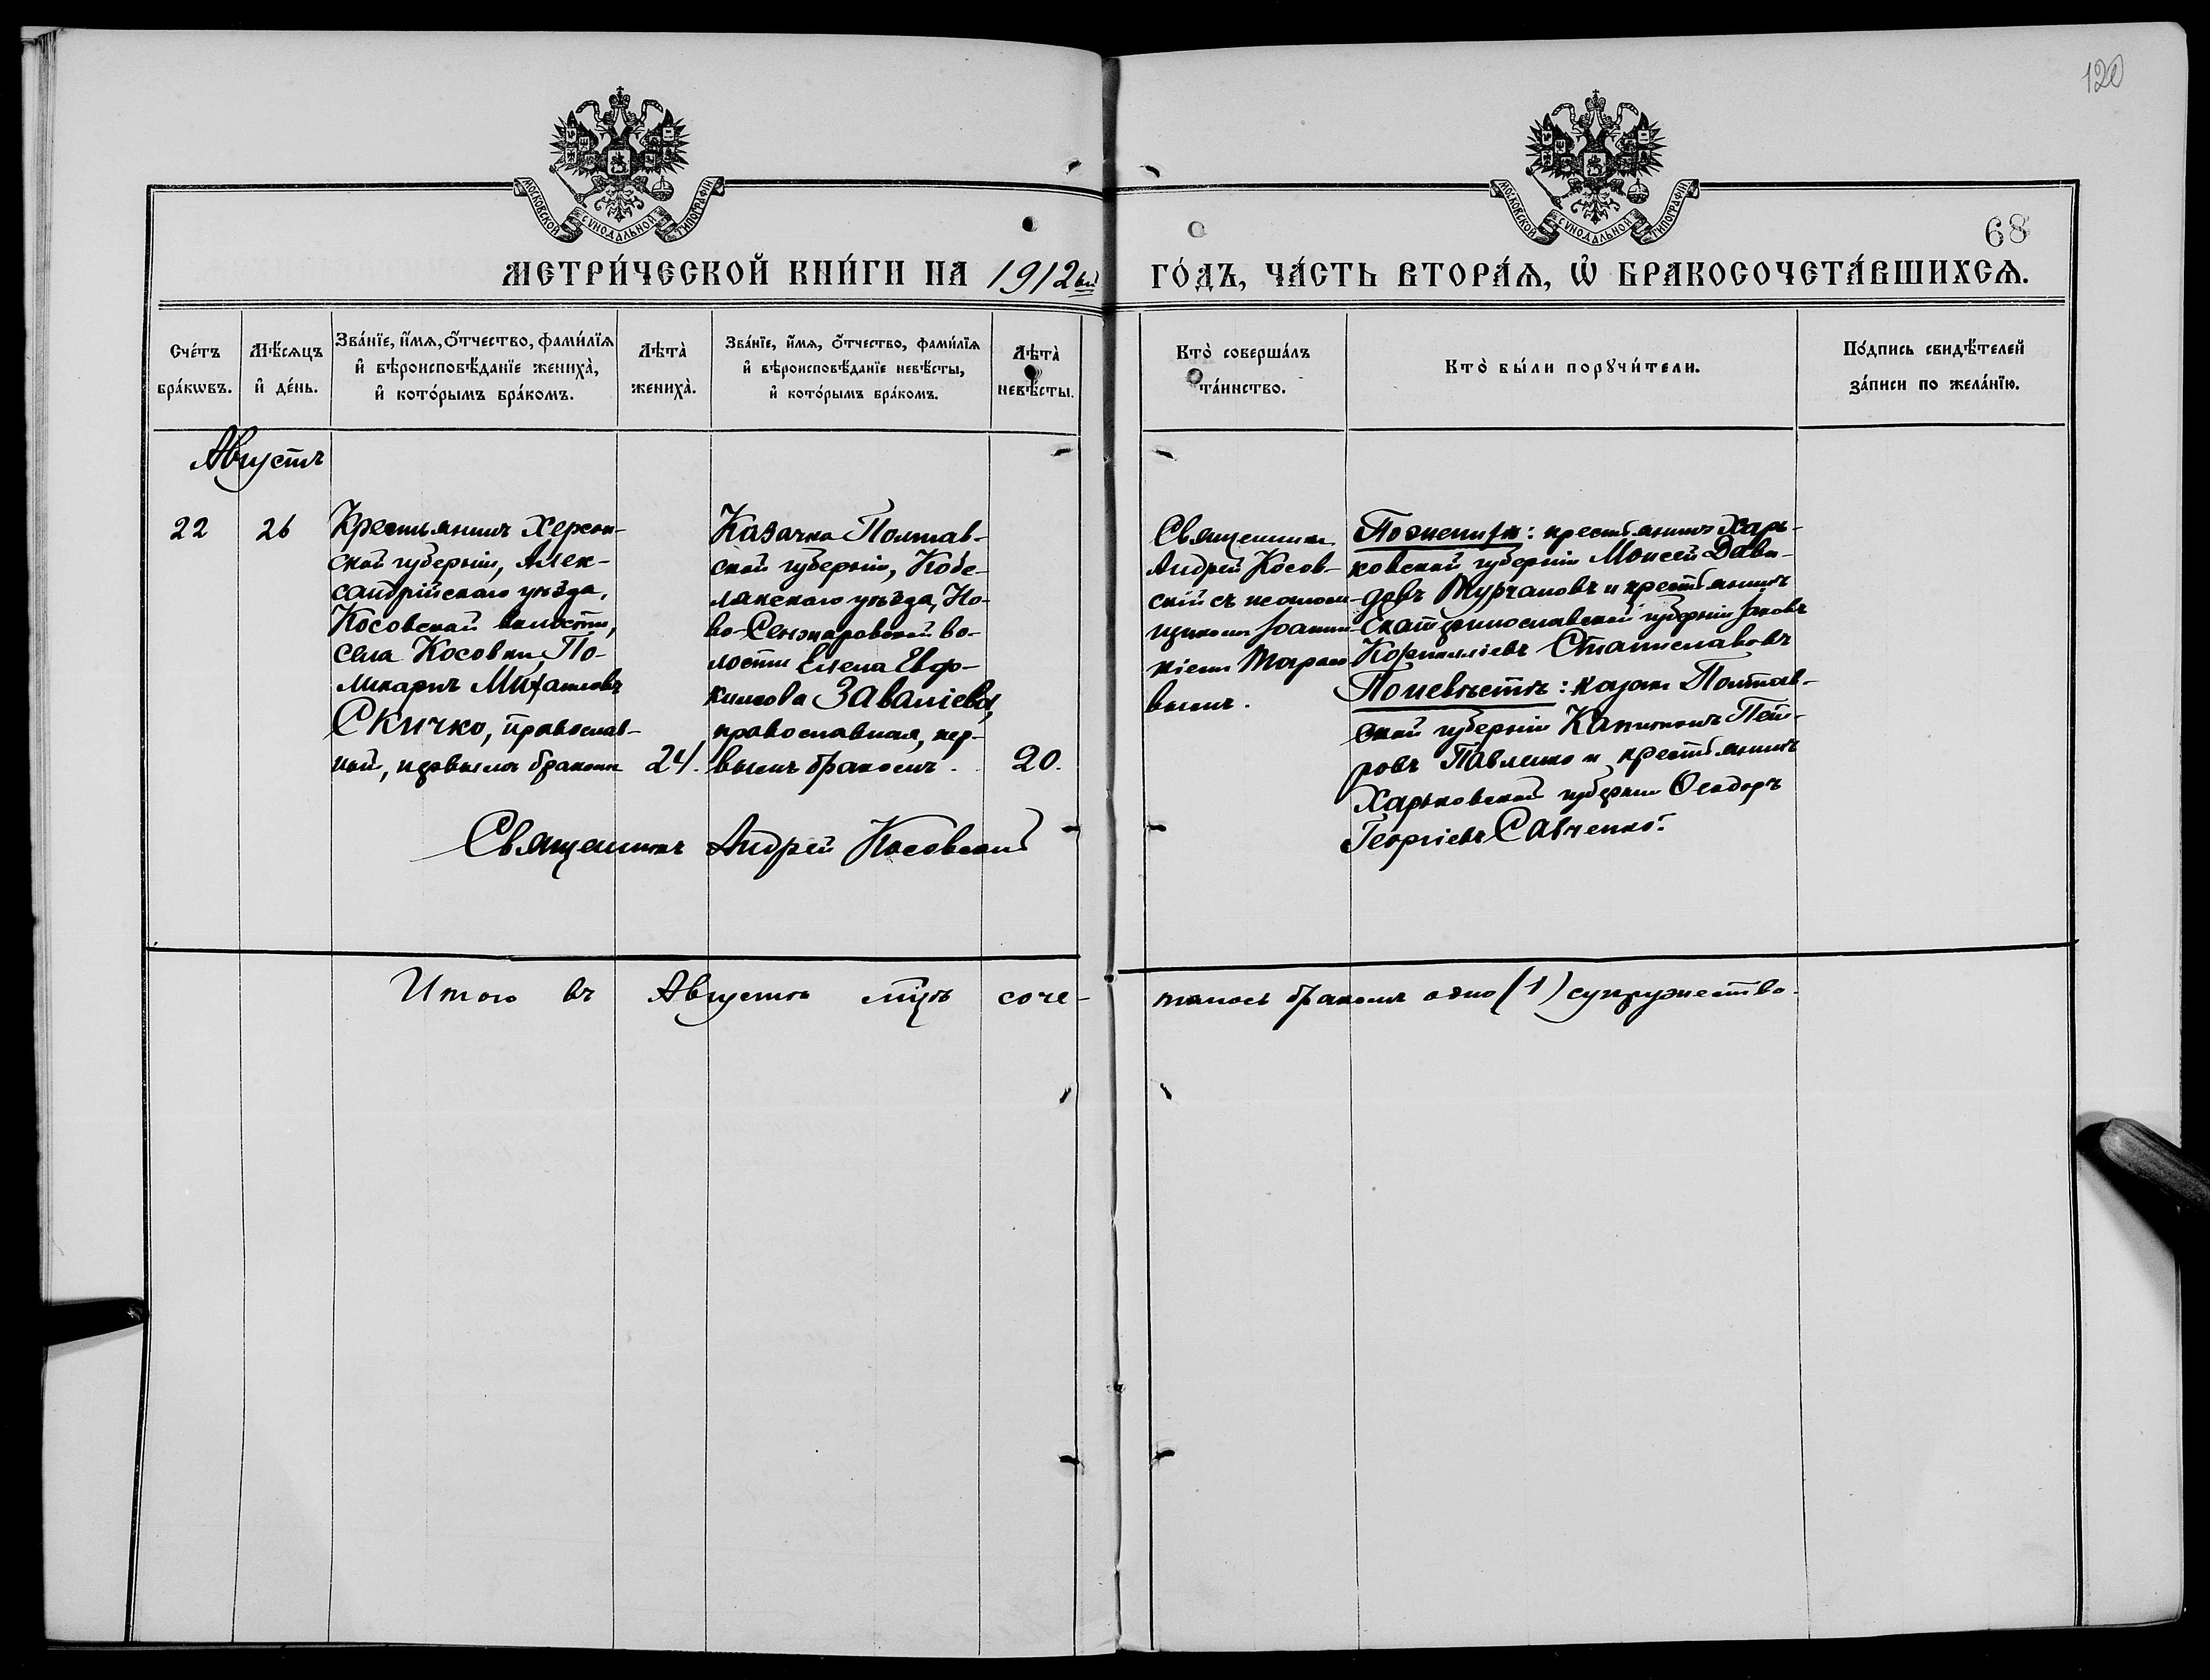 120
МОСКОВСКОЙ СѴНОДАЛЬНОЙ ТИПОГРАФІИ
МОСКОВСКОЙ СѴНОДАЛЬНОЙ ТИПОГРАФІИ
68
МЕТРИ́ЧЕСКОЙ КНИ́ГИ НА 1912 ый
ГО́ДЪ, ЧА́СТЬ ВТОРА́Ѧ, Ѡ҆ БРАКОСОЧЕТА́ВШИХСѦ.
Сче́тъ
бра́кѡвъ.
Мѣ́сѧцъ
и҆ де́нь.
Зва́нїе, и҆́мѧ, ѻ҆́тчество, фами́лїѧ
и҆ вѣроисповѣ́данїе жениха̀,
и҆ кото́рымъ бра́комъ.
Лѣта̀
жениха̀.
Зва́нїе, и҆́мѧ, ѻ҆́тчество, фами́лїѧ
и҆ вѣроисповѣ́данїе невѣ́сты,
и҆ кото́рымъ бра́комъ.
Лѣта̀
невѣ́сты.
Кто̀ соверша́лъ
та́инство.
Кто̀ бы́ли порꙋчи́тели.
По́дпись свидѣ́телей
за́писи по жела́нїю.
Августъ
22
26
Крестьянинъ Херсон-
ской губерніи, Алек-
сандрійскаго уѣзда,
Косовской волости,
села Косовки, По-
ликарпъ Михаиловъ
Скичко, православ-
ный, первымъ бракомъ
24.
Казачка Полтав-
ской губерніи, Кобе-
лякскаго уѣзда, Но-
во-Сенжаровской во-
лости Елена Евдо-
кимова Заваліева,
православная, пер-
вымъ бракомъ.
20.
Священникъ
Андрей Косов-
скій съ псаломщ-
щикомъ Іоанни-
кіемъ Тарано
вымъ.
По женихѣ: крестьянинъ Харь-
ковской губерніи Моисей Дави-
довъ Турчановъ и крестьянинъ
Екатеринославской губерніи Іаковъ
Корниліевъ Станиславовъ
По невѣстѣ: казакъ Полтав-
ской губерніи Капитонъ Пет-
ровъ Павленко и крестьянинъ
Харьковской губерніи Ѳеодоръ
Георгіевъ Савченко.
Священникъ Андрей Косовскій
Итого въ Августѣ мцѣ соче-
талось бракомъ одно (1) супружество.